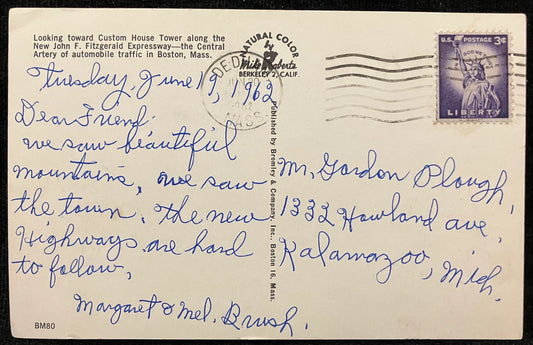 Looking toward Custom House Tower along the
New John F. Fitzgerald Expressway—the Central
Artery of automobile traffic in Boston, Mass.
NATURAL COLOR
by
Mike Roberts
BERKELEY 2, CALIF.
DEDHAM
1962
MASS
U.S. POSTAGE 3¢
IN GOD WE TRUST
LIBERTY
Tuesday, June 19, 1962
Dear Friend:
we saw beautiful
mountains, we saw
the town. The new
Highways are hard
to follow,
Margaret & Mel. Brush.
Published by Bromley & Company, Inc., Boston 16, Mass.
Mr. Gordon Plough,
1332 Howland ave,
Kalamazoo, Mich.
BM80